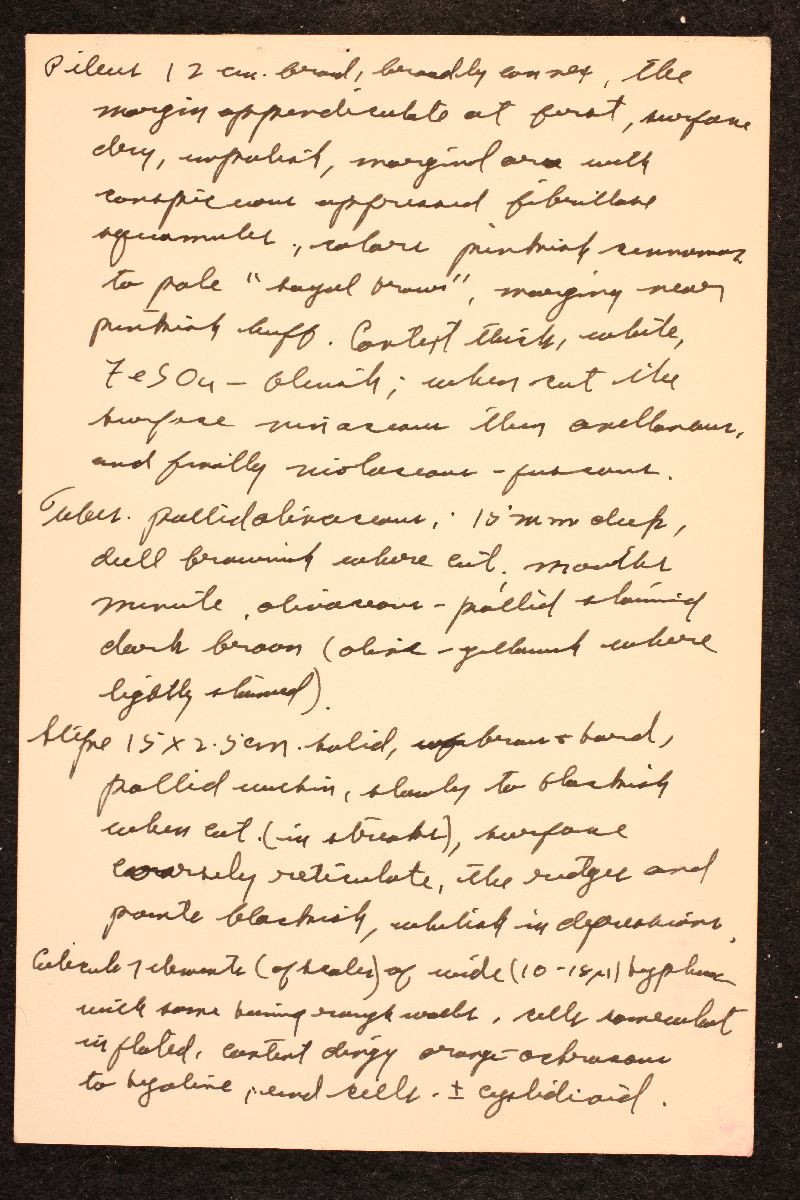 Pileus 12 cm. broad, broadly convex, the
margin appendiculate at first, surface
dry, unpolish, marginal area with
conspicuous appressed fibrillose
squamules, colors pinkish cinnamon
to pale "sayal brown", margin near
pinkish buff. Context thick, white,
FeSO4 - bluish; when cut the
surface vinaceous then avellaneous,
and finally violaceous - fuscous.
Tubes pallid olivaceous, 15 mm deep,
dull brownish where cut, mouths
minute, olivaceous - pallid stained
dark brown (olive - yellowish where
lightly stained).
Stipe 15 x 2.5 cm. solid, hard,
pallid within, slowly to blackish
when cut (in streaks), surface
coarsely reticulate, the ridges and
points blackish, whitish in depressions.
Cuticular elements (of scales) of wide (10-15µ) hyphae
with some having rough walls, cells somewhat
inflated, content dingy orange-ochraceous
to hyaline, end cells ± cystidioid.